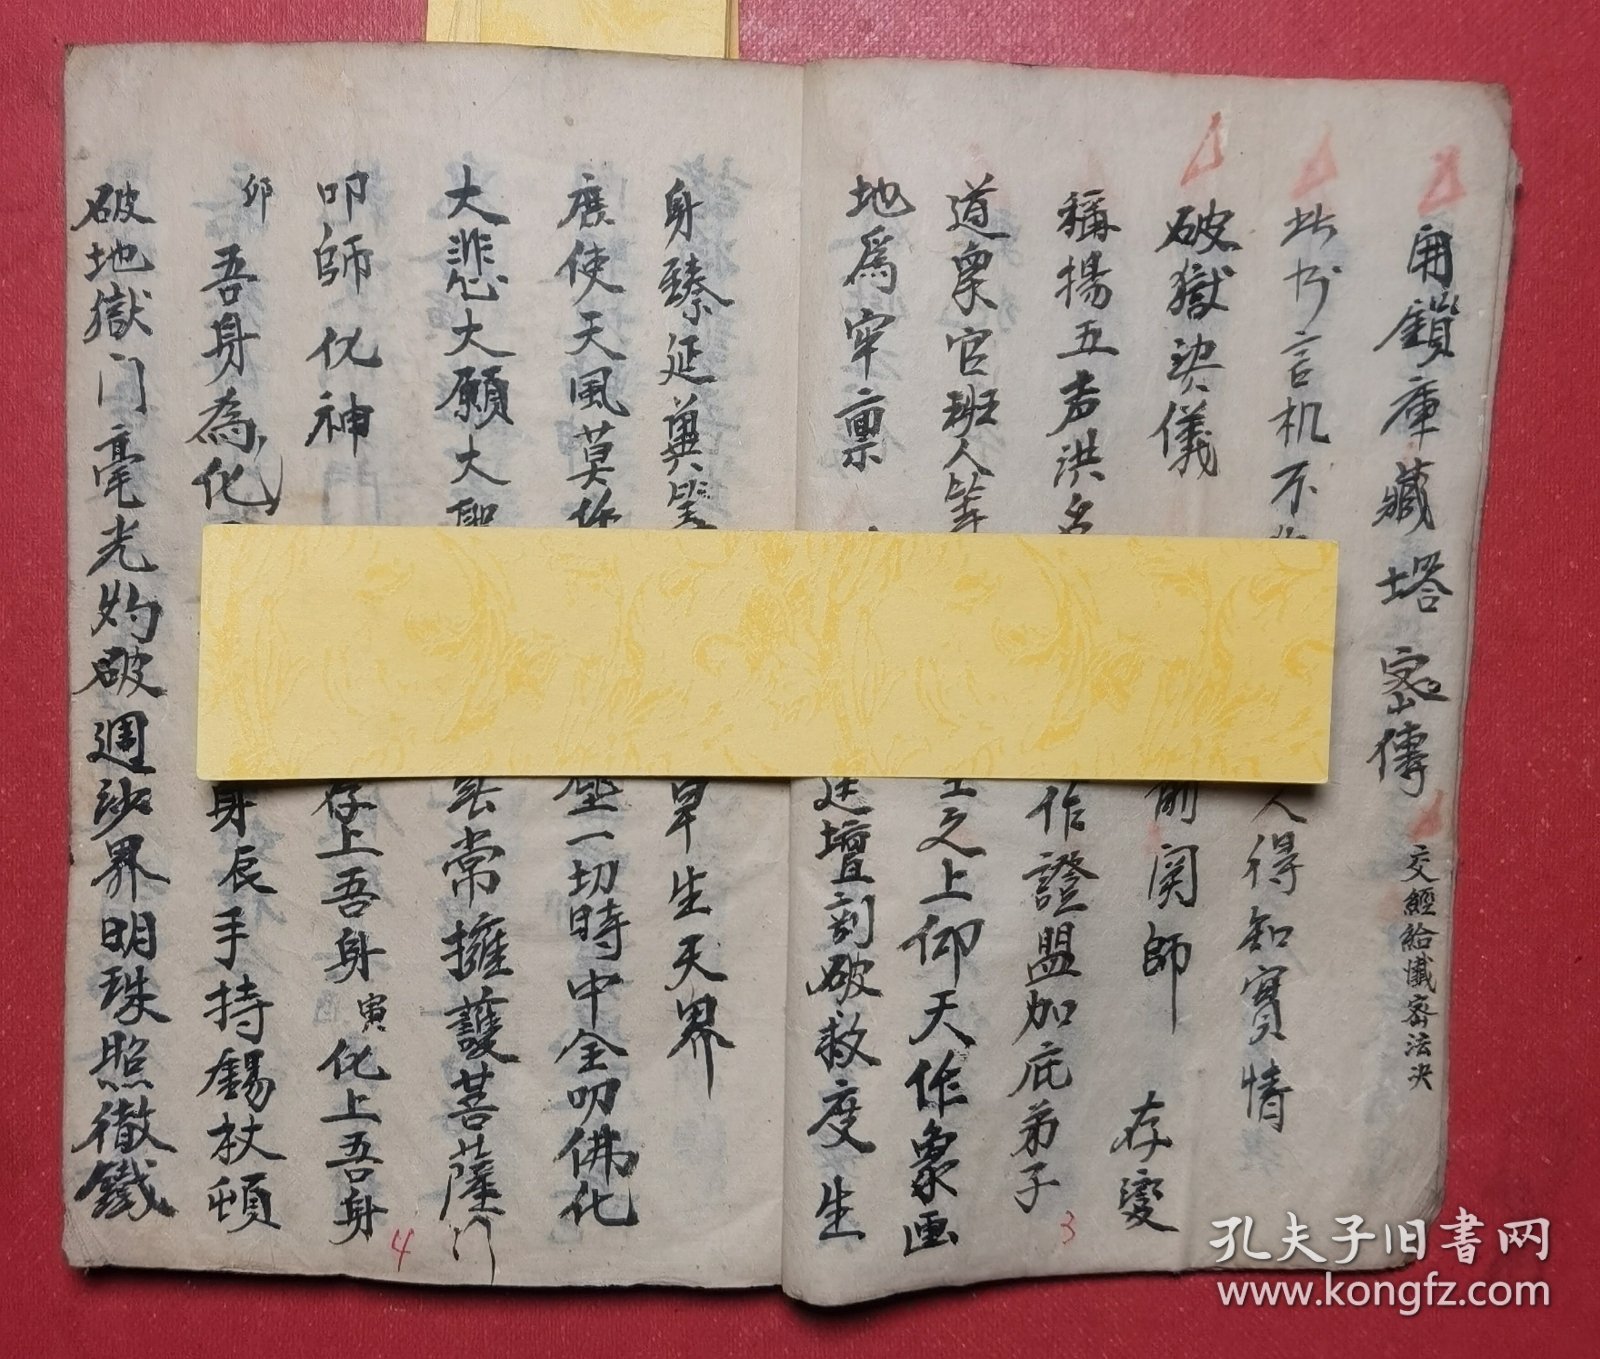 用鎖庫藏塔 密傳 交經給懺密法决
此書言机不 人得知實情
破獄訣儀 前闵師 存變
稱揚五声洪名 作證盟加庇弟子
道眾官班人等 之上仰天作象画
地爲牢禀 迋壇剖破救度生
身臻延冀望 早生天界
廣使天風莫 座一切時中全叨佛化
大悲大願大聖 常擁護菩薩門
叩師化神 存上吾身寅化上吾身
卯吾身為化 身辰手持錫杖頓
破地獄门毫光灼破週沙界明珠照徹鐵
3
4
孔夫子旧书网
www.kongfz.com